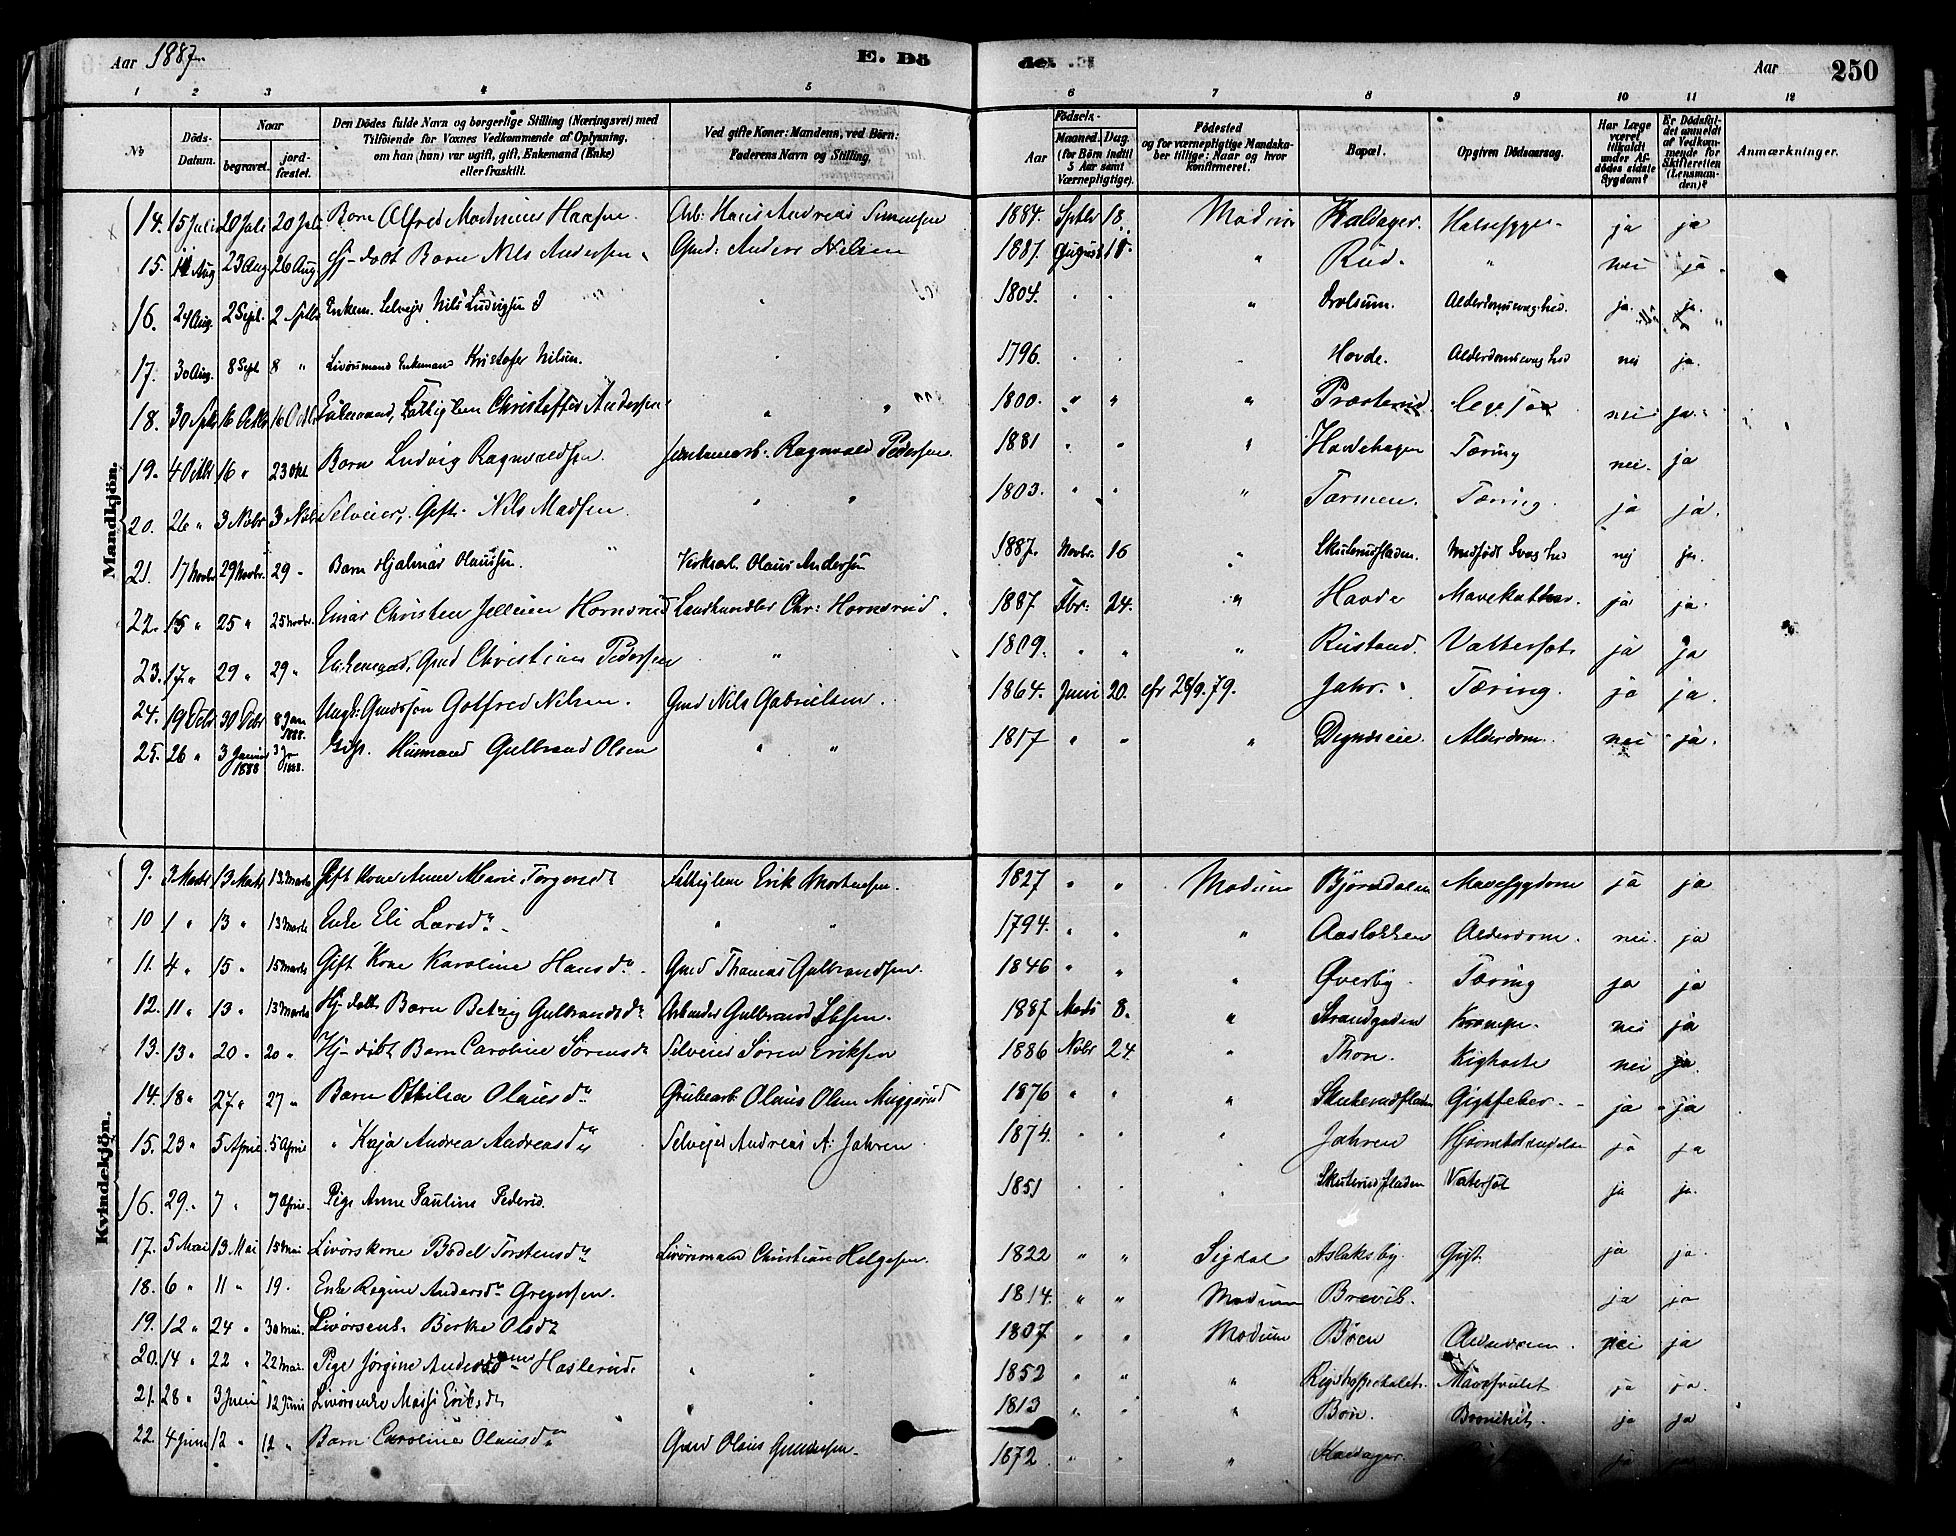 Aar 1887. E. Dö de. Aar 250
1 2 3 4 5 6 7 8 9 10 11 12
No Döds-Datum. Naar begravet. jordfæstet. Den Dödes fulde Navn og borgerlige Stilling (Næringsvei) med Tilföiende for Voxnes Vedkommende af Oplysning, om han (hun) var ugift, gift, Enkemand (Enke) eller fraskilt. Ved gifte Koner: Mandens, ved Börn: Faderens Navn og Stilling. Aar Födsels- Maaned. Dag. (for Börn indtil 5 Aar samt Værnepligtige). Födested og for værnepligtige Mandskaber tillige: Naar og hvor konfirmeret. Bopæl. Opgiven Dödsaarsag. Har Læge været tilkaldt under Afdödes sidste Sygdom? Er Dödsfaldet anmeldt af Vedkommende for Skifteretten (Lensmanden)? Anmærkninger.
Mandkjön.
14. 15 Juli 20 Juli 20 Juli Barn Alfred Martinius Hansen. Arb: Hans Andreas Simensen 1884. Septbr 18. Modum Kaldager. Halssyge. ja ja
15. 11 Aug 23 Aug 26 Aug Hj-døbt Barn Nils Andersen Gmd: Anders Nilsen 1887. August " Rud. " nei ja.
16. 24 Aug. 2 Sept. 2 Septbr Enkem. Selveier Nils Ludvigsen " 1804. " " " Drolsum. Alderdomssvaghed ja. ja.
17. 30 Aug. 8 Sept 8 " Livørsmand Enkemand Kristofer Nilsen. " 1796. " " " Hovde. Alderdomssvaghed nei ja.
18. 30 Septbr 16 Octbr 16 Octbr Enkemand, Fattiglem Christoffer Andersen " " 1800. " " " Præsterud. nei ja.
19. 4 Octbr 16 " 23 Okt Barn Ludvig Ragnvaldsen. Ragnvald Pedersen. 1881 " " " Hovdehagen Tæring nei. ja
20. 26 " 3 Nvbr 3 Nvbr Selveier, Gift. Nils Madsen. " " 1803. " " " Tærmen. Tæring. ja ja.
21. 17 Novbr 29 Novbr. 29 - Barn Hjalmar Olaussen. Virksarb. Olaus Andersen 1887. Novbr. 16 " Skuterudfladen. Medfødt Svaghed nej ja.
22. 15 " 25 " 25 Novbr. Einar Christen Jelleien Hornsrud Landhandler Chr: Hornsrud. 1887 Fbr: 24. " Hovde Mavekatharr. ja ja.
23. 17. " 29 " 29 " Enkemand, Gmd Christian Pedersen " 1809. " " " Rustand. Vattersot. ja ja
24. 19 Decbr 30 Decbr 8 Jan 1888. Ungk: Gmdssøn Gotfred Nilsen. Gmd Nils Gabrielsen. 1864. Juni 20. cfr 28/9.79. Jahr. Tæring. ja ja.
25. 26 " 3 Januar 1888 3 Jan 1888. Gift. Husmand Gulbrand Olsen " " 1817 " " " Dynæseie. Alderdom. nei ja.
Kvindekjön.
9. 3 Marts 13 Marts 13 Marts Gift Kone Anne Marie Torgersdr Fattiglem Erik Mortensen. 1827 " " Modum Bjørndalen Mavesygdom ja ja
10 1 " 13 " 13 Marts Enke Eli Larsdr " " 1794. " " " Aasløkken Alderdom. nei. ja
11. 4 " 15 " 15 Marts Gift Kone Karoline Hansdr. Gmd Thomas Gulbrandsen. 1846 " " " Øverby. Tæring ja ja
12. 11 " 13 " 13 Marts Hj-døbt Barn Betzy Gulbrandsdr Arbeider Gulbrand Ibsen. 1887 Marts 8. " Strandgaden Krampe. nei ja
13. 13 " 20 " 20 " Hj-døbt Barn Caroline Sørensdr Selveier Søren Eriksen 1886 Nvbr 24. " Thon. Kighoste nei ja.
14. 18 " 27 " 27 " Barn Othilia Olausdr Grubearb Olaus Olsen Muggerud 1876 " " " Skuterudfladen Gigtfeber. ja ja
15. 23 " 5 April. 5 April " Kaja Andrea Andreasdr Selveier Andreas A: Jahren. 1874. " " " Jahren ja ja
16. 29. " 7 " 7 April. Pige Anne Pauline Pedersd. 1851 " " " Skuterudfladen Vatersot ja ja.
17. 5 Mai 13 Mai 15 Mai Livørskone Bodel Torstensdr Livørsmand Christian Helgesen. 1822 " " Sigdal Aslaksby. Gigt. ja ja.
18. 6 " 11 " 19. Enke Regine Andersdr Gregersen. 1814. " " Modum Brevik. ja ja
19. 12 " 24 " 30 Mai. Livørsenk. Berthe Olsdr 1807 " " Modum Bøen Alderdom. nei ja
20. 14 " 22 " 22 Mai. Pige Jørgine Andersen Haslerud. " 1852 " " " Mavesvulst ja ja.
21. 28 " 3 Juni 12 Juni Livørsenke Massi Eriksdr " " 1813 " " " Bøen. Bronchit. ja ja
22. 4 Juni 12 " 12 " Barn Caroline Olausdr Gmd Olaus Gundersen. 1872 " " " Kaldager. ja ja